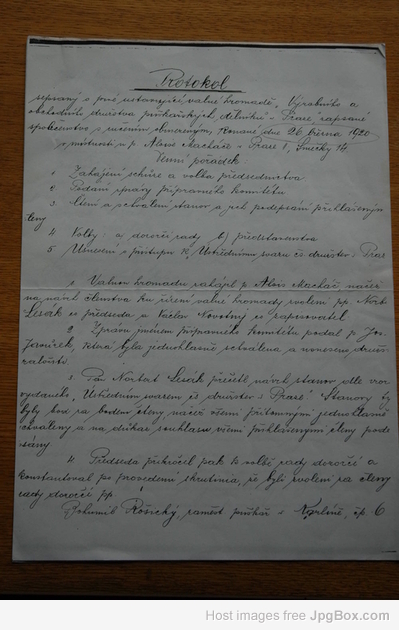 Protokol
sepsaný o prvé ustavující valné hromadě „Výrobního a
obchodního družstva puškařských dělníků v Praze, zapsané
společenstvo s ručením obmezeným, konané dne 26. března 1920
v místnosti u p. Aloise Macháče v Praze I, Smečky 14
Denní pořádek:
1. Zahájení schůze a volba předsednictva
2. Podání zprávy přípravného komitétu
3. Čtení a schválení stanov a jich podepsání přihlášenými
členy
4. Volby: a) dozorčí rady b) představenstva
5. Usnesení o přístupu k Ústřednímu svazu čs družstev v Praze
1. Valnou hromadu zahájil p. Alois Macháč načež
na návrh členstva ku řízení valné hromady zvoleni pp. Norb.
Lesák co předseda a Václav Novotný co zapisovatel.
2. Zprávu jménem přípravného komitétu podal p. Jos.
Janeček, která byla jednohlasně schválena a usneseno družstvo
založiti.
3. Pan Norbert Lesák přečetl návrh stanov dle vzoru
vydaného „Ústředním svazem čs družstev v Praze". Stanovy ty
byly bod za bodem čteny načež všemi přítomnými jednohlasně
schváleny a na důkaz souhlasu všemi přihlášenými členy pode-
psány.
4. Předseda přikročil pak k volbě rady dozorčí a
konstatoval po provedení skrutinia, že byli zvoleni za členy
rady dozorčí pp.
Bohumil Růžický, zaměst. puškař v Karlíně, čp. 6
Host images free JpgBox.com